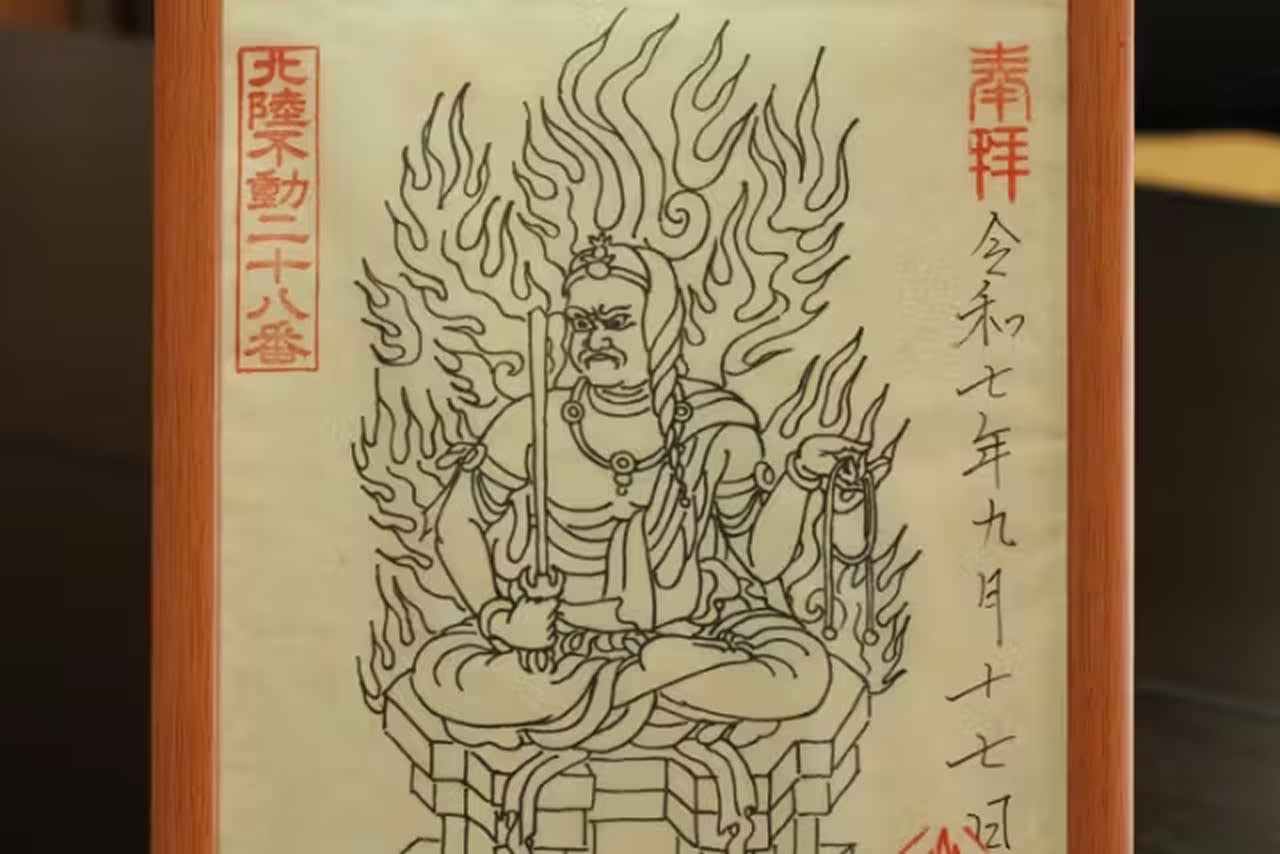 奉拝
令和七年九月十七日
北陸不動二十八番